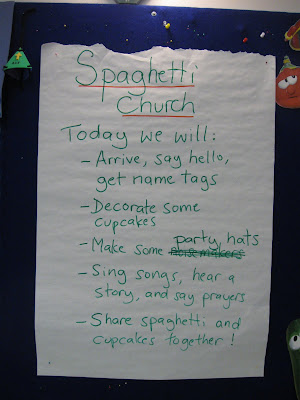 Spaghetti
Church
Today we will:
- Arrive, say hello,
get name tags
- Decorate some
cupcakes
- Make some party hats
noisemakers
- Sing songs, hear a
story, and say prayers
- Share spaghetti and
cupcakes together!